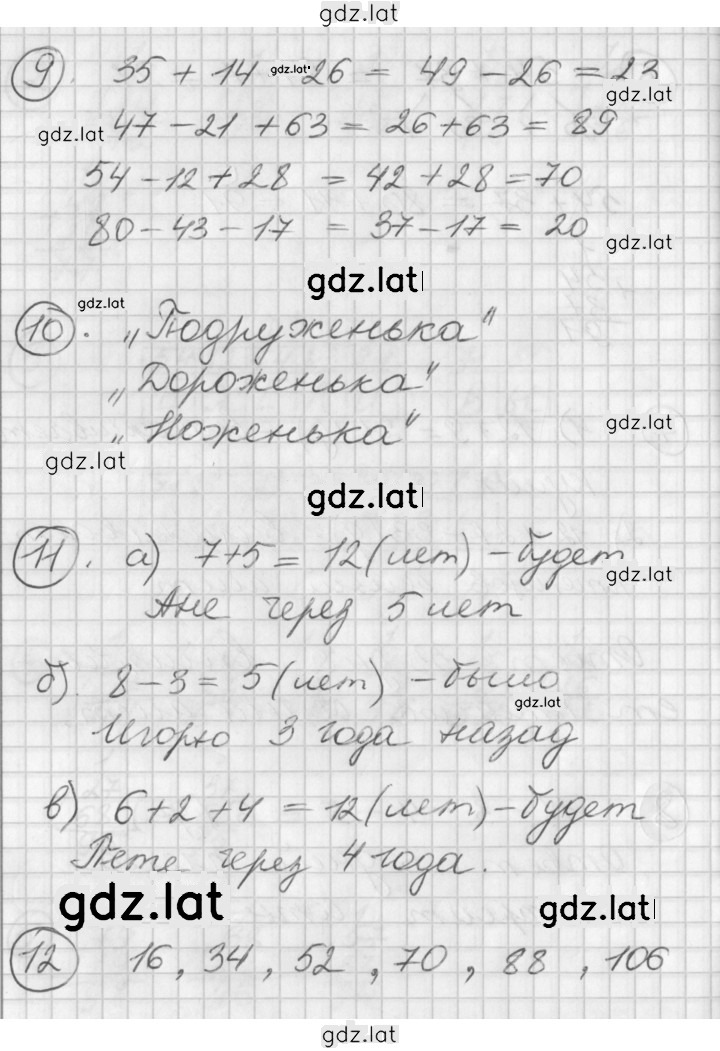 gdz.lat
9. 35 + 14 gdz.lat 26 = 49 - 26 = 23
gdz.lat
gdz.lat 47 - 21 + 63 = 26 + 63 = 89
54 - 12 + 28 = 42 + 28 = 70
80 - 43 - 17 = 37 - 17 = 20
gdz.lat
gdz.lat
gdz.lat
10. „Подруженька"
„Дороженька"
„Ноженька"
gdz.lat
gdz.lat
gdz.lat
11. а) 7 + 5 = 12 (лет) - будет
gdz.lat
Ане через 5 лет
б) 8 - 3 = 5 (лет) - было
gdz.lat
Игорю 3 года назад
в) 6 + 2 + 4 = 12 (лет) - будет
Пете через 4 года.
gdz.lat
gdz.lat
12 16, 34, 52, 70, 88, 106
gdz.lat